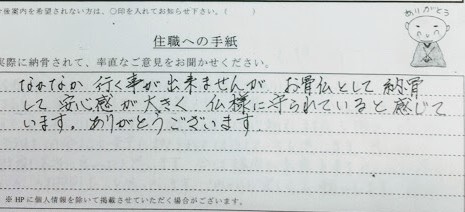 後案内）を希望されない方は、○印を入れてお知らせ下さい。（　　）
ありがとう
住職への手紙
実際に納骨されて、率直なご意見をお聞かせください。
なかなか 行く事が出来ませんが お骨仏として 納骨
して 安心感が大きく 仏様に守られていると感じて
います。ありがとうございます
※ HPに個人情報を除いて掲載させていただく場合がございます。